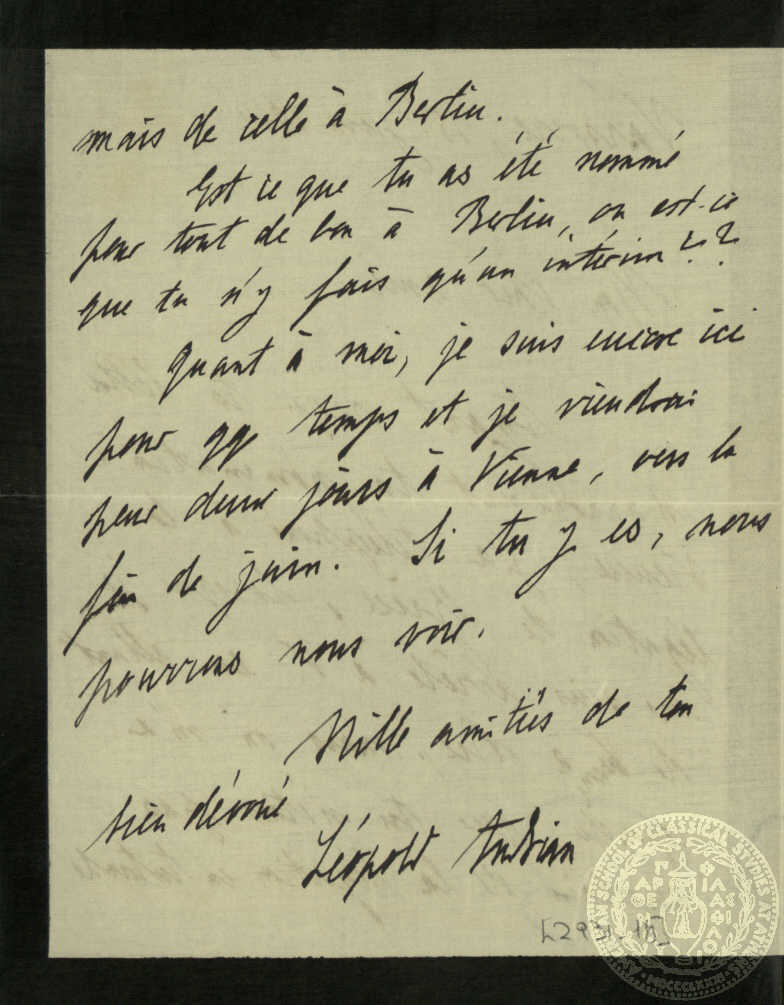 mais de celle à Berlin.
Est ce que tu as été nommé
pour tout de bon à Berlin, ou est-ce
que tu n'y fais qu'un intérim??
Quant à moi, je suis encore ici
pour qq temps et je viendrai
pour deux jours à Vienne, vers la
fin de juin. Si tu y es, nous
pourrons nous voir.
Mille amitiés de ton
bien dévoué
Léopold Andrian